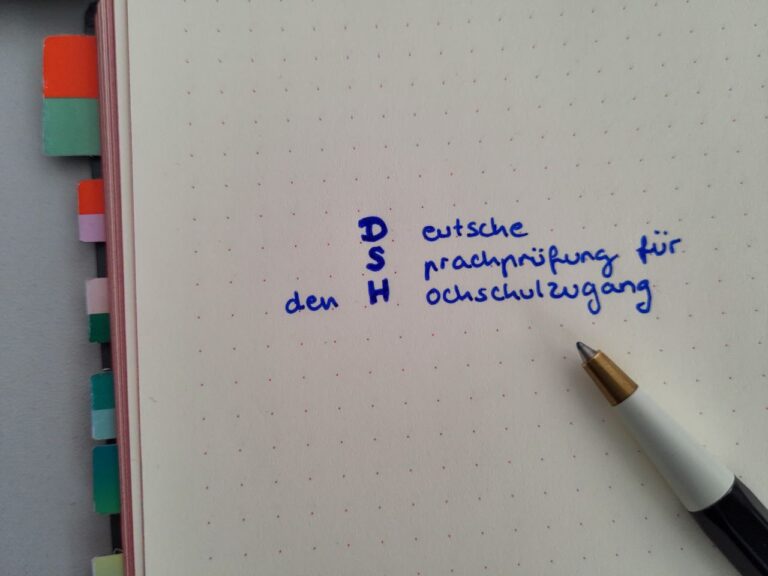 D eutsche
S prachprüfung für
den H ochschulzugang